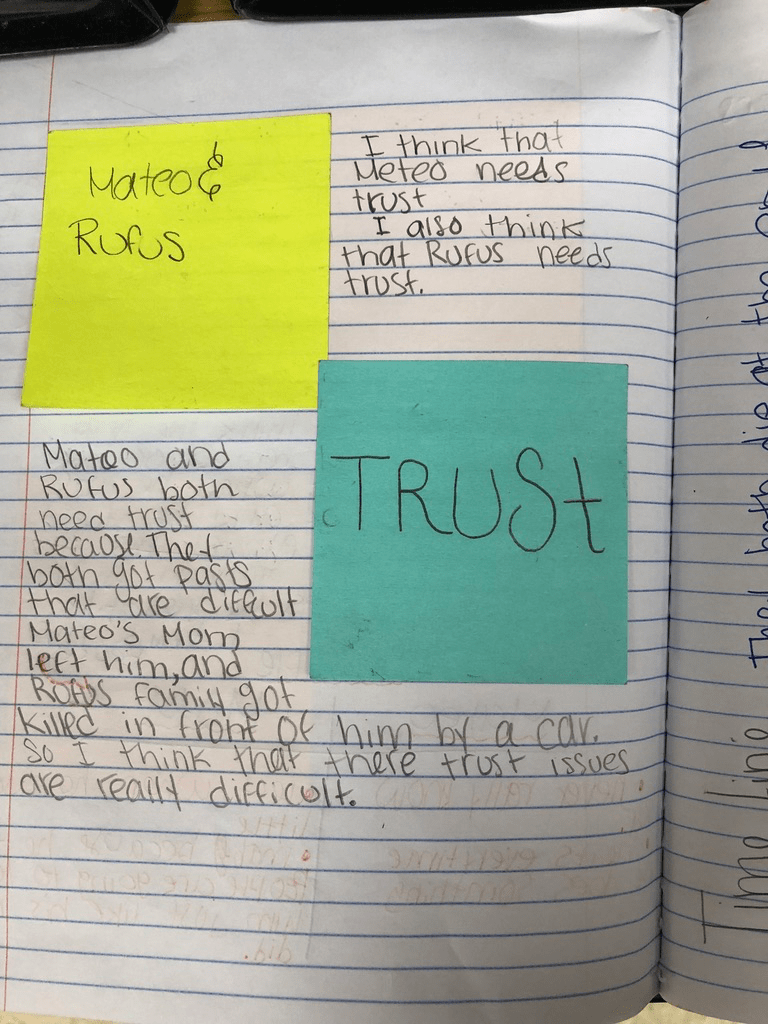 Mateo &
Rufus
I think that
Meteo needs
trust
I also think
that Rufus needs
trust.
TRUSt
Mateo and
Rufus both
need trust
because They
both got pasts
that are difficult
Mateo's Mom
left him, and
Rufus family got
killed in front of him by a car.
So I think that there trust issues
are really difficult.
Time Line
They both die at the